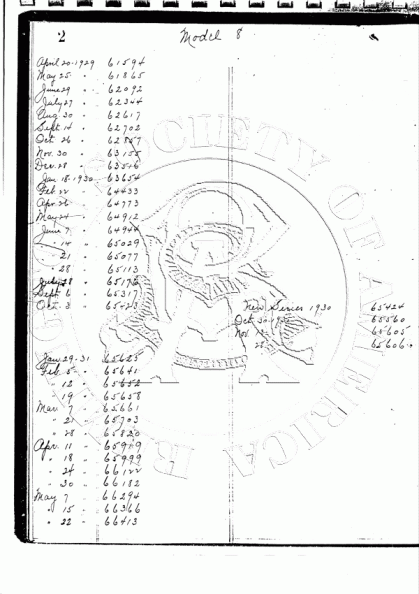 2
Model 8
April 20-1929 61594
May 25 " 61865
June 29 " 62092
July 27 " 62344
Aug 30 " 62617
Sept 14 " 62702
Oct 26 " 62857
Nov. 30 " 63155
Dec. 28 " 63516
Jan 18-1930 63654
Feb 22 " 64433
Apr. 26 " 64773
May 24 " 64912
June 7 " 64944
" 14 " 65029
" 21 " 65077
" 28 " 65113
July 28 " 65176
Sept 6 " 65317
Oct. 3 " 65423
New Series 1930 65424
Oct 30-1930 65560
Nov. 65605
65606
Jan 29-31 65625
Feb. 5 " 65641
" 12 " 65652
" 19 " 65658
Mar. 7 " 65661
" 21 " 65703
" 28 " 65820
Apr. 11 " 65949
" 18 " 65999
" 24 " 66122
" 30 " 66182
May 7 " 66294
" 15 " 66366
" 22 " 66413
SOCIETY OF AMERICA